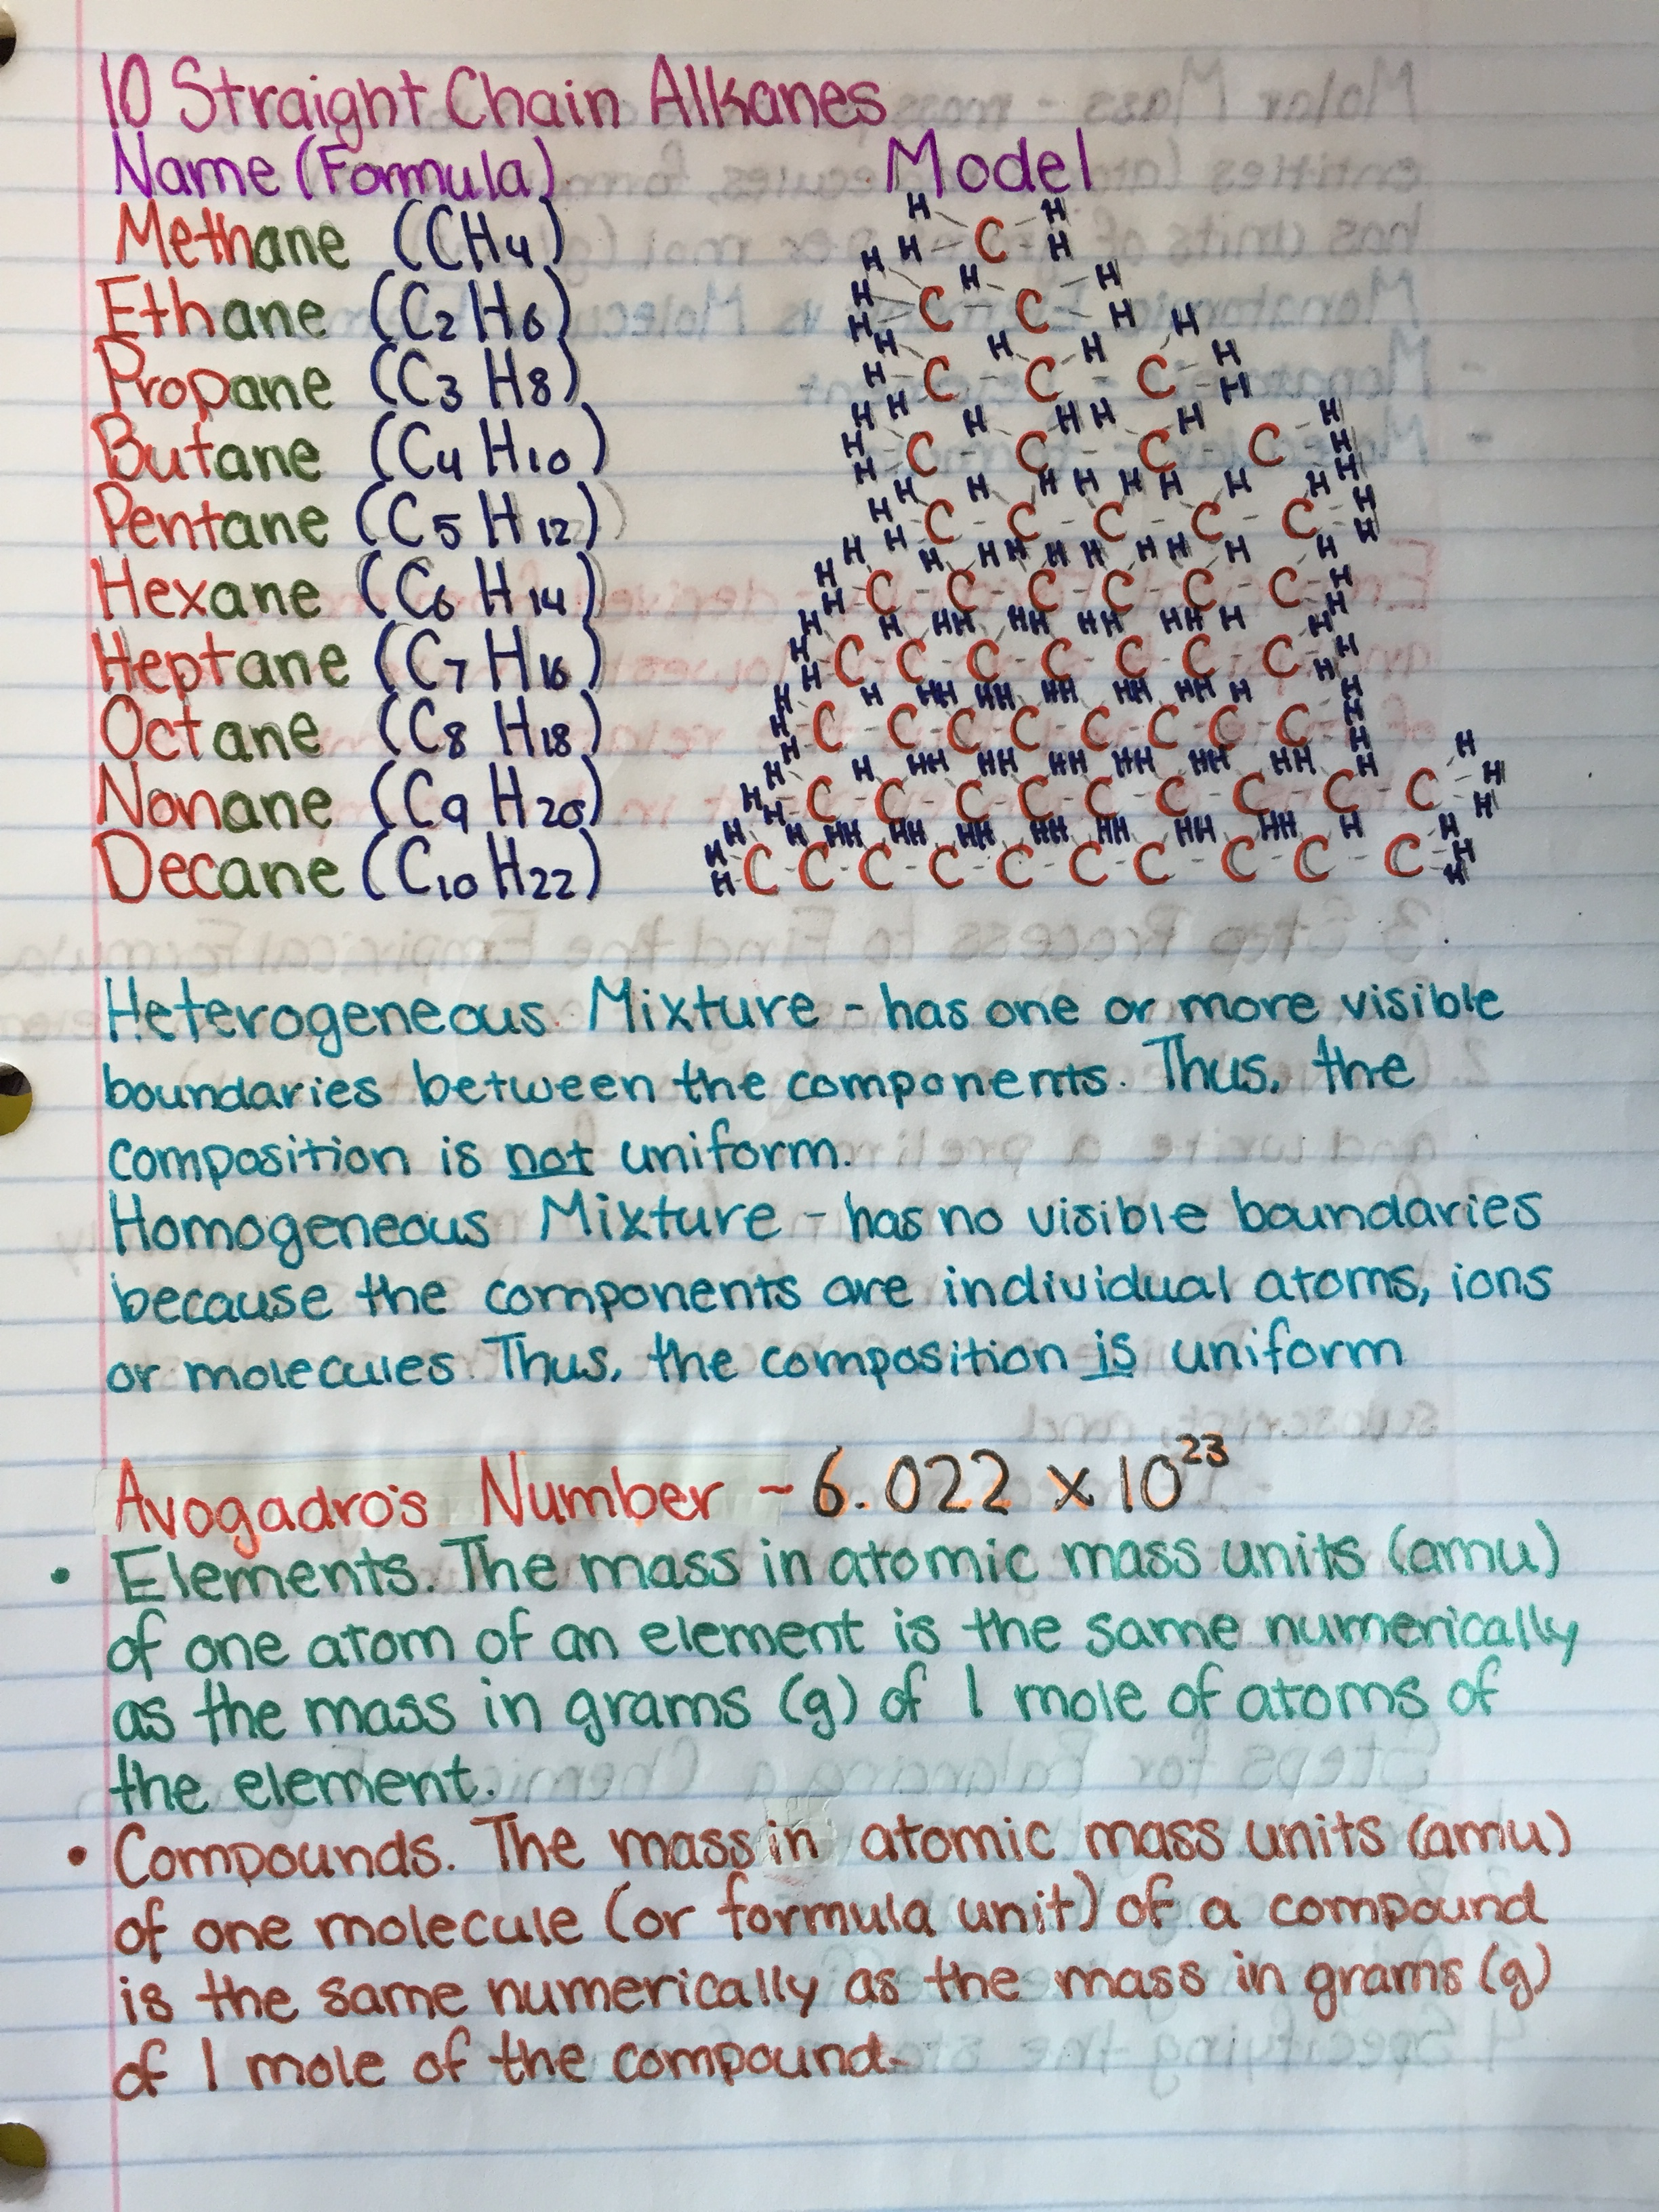 10 Straight Chain Alkanes
Name (Formula) Model
Methane (CH4)
Ethane (C2 H6)
Propane (C3 H8)
Butane (C4 H10)
Pentane (C5 H12)
Hexane (C6 H14)
Heptane (C7 H16)
Octane (C8 H18)
Nonane (C9 H20)
Decane (C10 H22)
Heterogeneous Mixture - has one or more visible
boundaries between the components. Thus, the
composition is not uniform.
Homogeneous Mixture - has no visible boundaries
because the components are individual atoms, ions
or molecules. Thus, the composition is uniform
Avogadro's Number - 6.022 x 10^23
• Elements. The mass in atomic mass units (amu)
of one atom of an element is the same numerically
as the mass in grams (g) of 1 mole of atoms of
the element.
• Compounds. The mass in atomic mass units (amu)
of one molecule (or formula unit) of a compound
is the same numerically as the mass in grams (g)
of 1 mole of the compound.